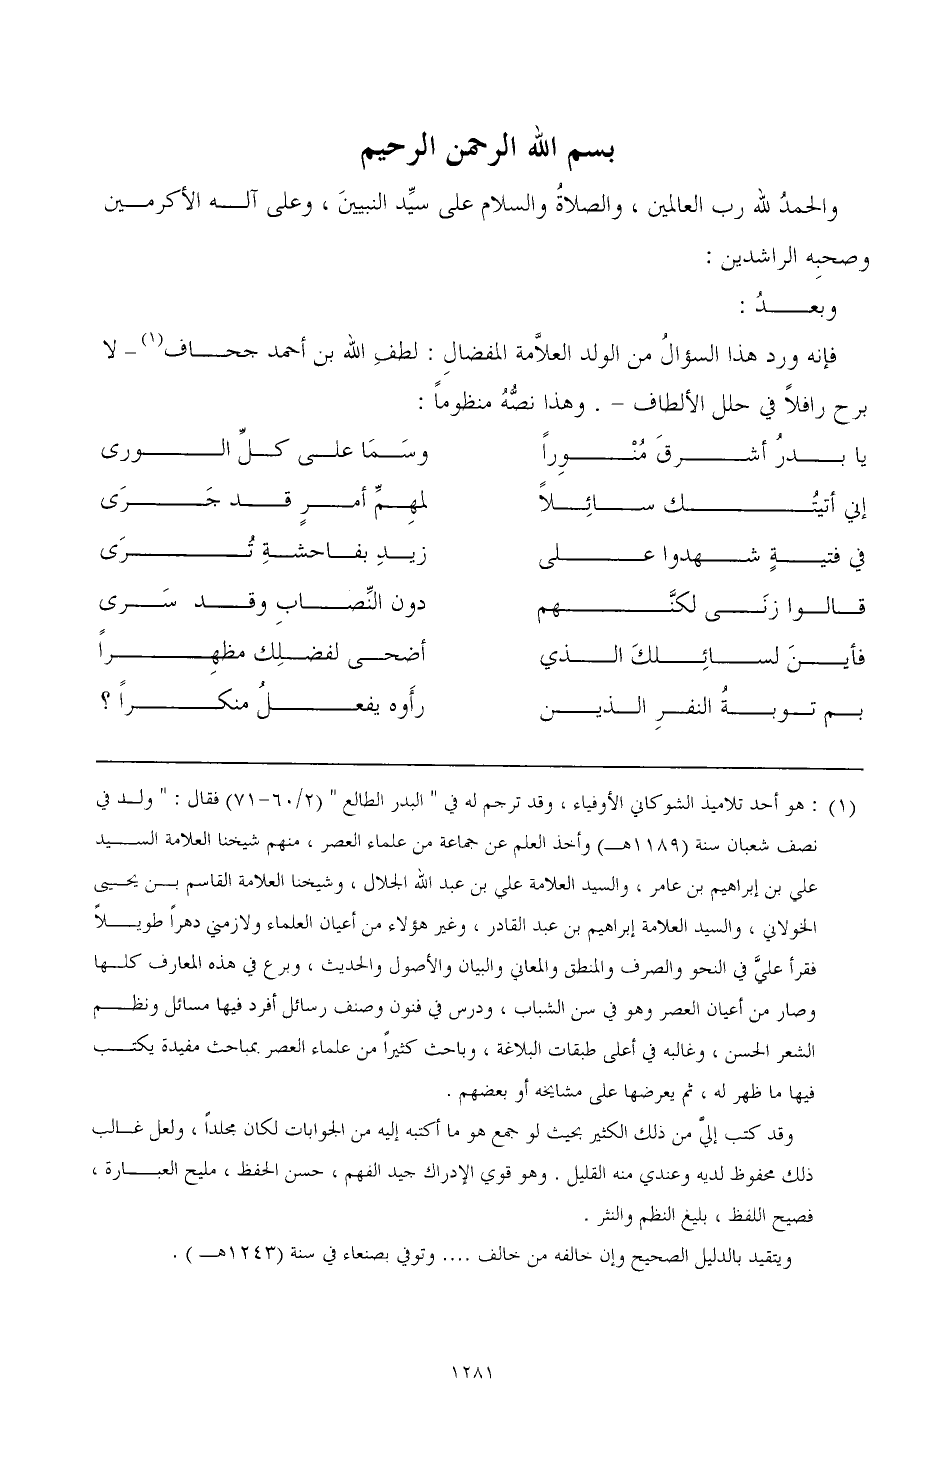 بسم الله الرحمن الرحيم
والحمدُ لله رب العالمين ، والصلاةُ والسلام على سيِّد النبيينَ ، وعلى آله الأكرمين
وصحبِه الراشدين :
وبعدُ :
فإنه ورد هذا السؤالُ من الولد العلاَّمة المفضال : لطفِ الله بن أحمد جحاف(١)- لا
برح رافلاً في حلل الألطاف - . وهذا نصُّهُ منظوماً :
يا بدرُ أشرقَ مُنْوراً وسَمَا على كلِّ الورى
إني أتيتُك سائِلاً لمهِمِّ أمرٍ قد جَرَى
في فتيةٍ شهدوا على زيدِ بفاحشةِ تُرَى
قالوا زنَى لكنَّهم دون النِّصابِ وقد سَرى
فأينَ لسائِلكَ الذي أضحى لفضلِك مظهِراً
بم توبةُ النفرِ الذين رأَوه يفعلُ منكراً ؟
(١) : هو أحد تلاميذ الشوكاني الأوفياء ، وقد ترجم له في " البدر الطالع " (٢/ ٦٠-٧١) فقال : " ولد في
نصف شعبان سنة (١١٨٩هـ) وأخذ العلم عن جماعة من علماء العصر ، منهم شيخنا العلامة السيد
علي بن إبراهيم بن عامر ، والسيد العلامة علي بن عبد الله الجلال ، وشيخنا العلامة القاسم بن يحيى
الخولاني ، والسيد العلامة إبراهيم بن عبد القادر ، وغير هؤلاء من أعيان العلماء ولازمني دهراً طويلاً
فقرأ عليَّ في النحو والصرف والمنطق والمعاني والبيان والأصول والحديث ، وبرع في هذه المعارف كلها
وصار من أعيان العصر وهو في سن الشباب ، ودرس في فنون وصنف رسائل أفرد فيها مسائل ونظم
الشعر الحسن ، وغالبه في أعلى طبقات البلاغة ، وباحث كثيراً من علماء العصر بمباحث مفيدة يكتب
فيها ما ظهر له ، ثم يعرضها على مشايخه أو بعضهم .
وقد كتب إليَّ من ذلك الكثير بحيث لو جمع هو ما أكتبه إليه من الجوابات لكان مجلداً ، ولعل غالب
ذلك محفوظ لديه وعندي منه القليل . وهو قوي الإدراك جيد الفهم ، حسن الحفظ ، مليح العبارة ،
فصيح اللفظ ، بليغ النظم والنثر .
ويتقيد بالدليل الصحيح وإن خالفه من خالف .... وتوفي بصنعاء في سنة (١٢٤٣هـ ) .
١٢٨١